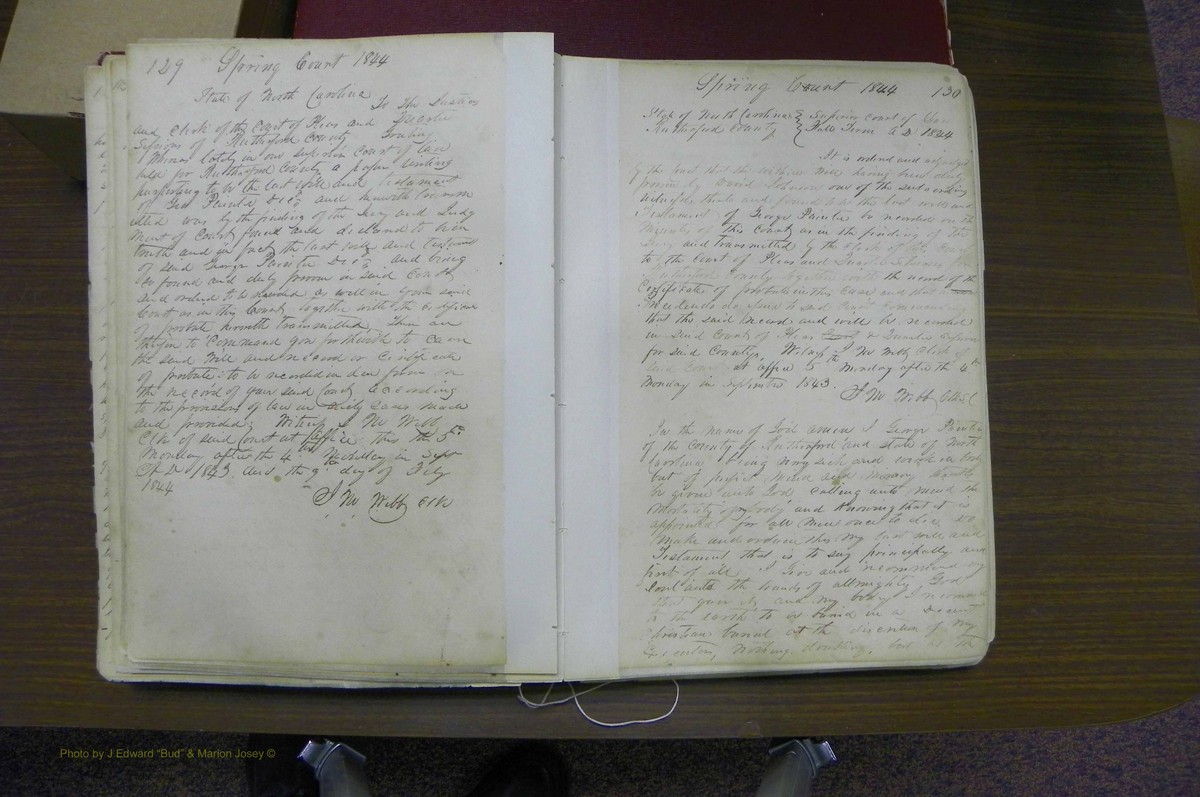 129 Spring Court 1844
State of North Carolina To the Justices
and Clerk of the Court of Pleas and Quarter
Sessions of Rutherford County Greeting
Whereas lately in our Superior Court of law
held for Rutherford County a paper writing
purporting to be the last Will and testament
of Geo decd and herewith transm
itted was by the finding of the Jury and Judg
ment of Court found and declared to be in
truth and in fact the last will and testament
of said George decd and being
so found and duly proven in said Court
and ordered to be as well in your said
Court as in this Court together with the certificate
of probate herewith transmitted, these are
therefore to Command you forthwith to cause
the said Will and record or Certificate
of probate to be recorded in due form in
the record of your said Court according
to the provisions of law in such cases made
and provided Witness J. No Webb
Clk of said Court at office this the 5th
Monday after the 4th Monday in Sept
A D 1843 and the 9th day of July
1844
J. No. Webb Clk
Spring Court 1844 130
State of North Carolina } Superior Court of Law
Rutherford County } Fall Term A D 1844
It is ordered and adjudged
by the Court that the written Will having been duly
proven by David one of the subscribing
thereto and found to be the last will and
Testament of George be recorded in the
of this County as in the finding of the
Jury and transmitted by the Clerk of this Court
to the Court of Pleas and Quarter Sessions
Rutherford County the record of the
Certificate of probate in this case and that
issue to said Court commanding
that the said record and will be recorded
in said Court of Pleas and Quarter Sessions
for said County, Witness J No Webb Clerk of
said Court at office 5th Monday after the 4th
Monday in September 1843.
J No Webb CMSC
In the name of God amen I George
of the County of Rutherford and state of North
Carolina being very sick and weak in body
but of perfect mind and memory thanks
be given unto God, calling unto mind the
mortality of my body and knowing that it is
appointed for all men once to die, do
make and ordain this my last will and
Testament that is to say principally and
first of all, I Give and recommend my
Soul into the hands of allmighty God
that gave it, and my body I recommend
to the earth to be buried in a Decent
Christian burial at the discretion of my
Executors, nothing doubting, but at the
Photo by J Edward "Bud" & Marion Josey ©